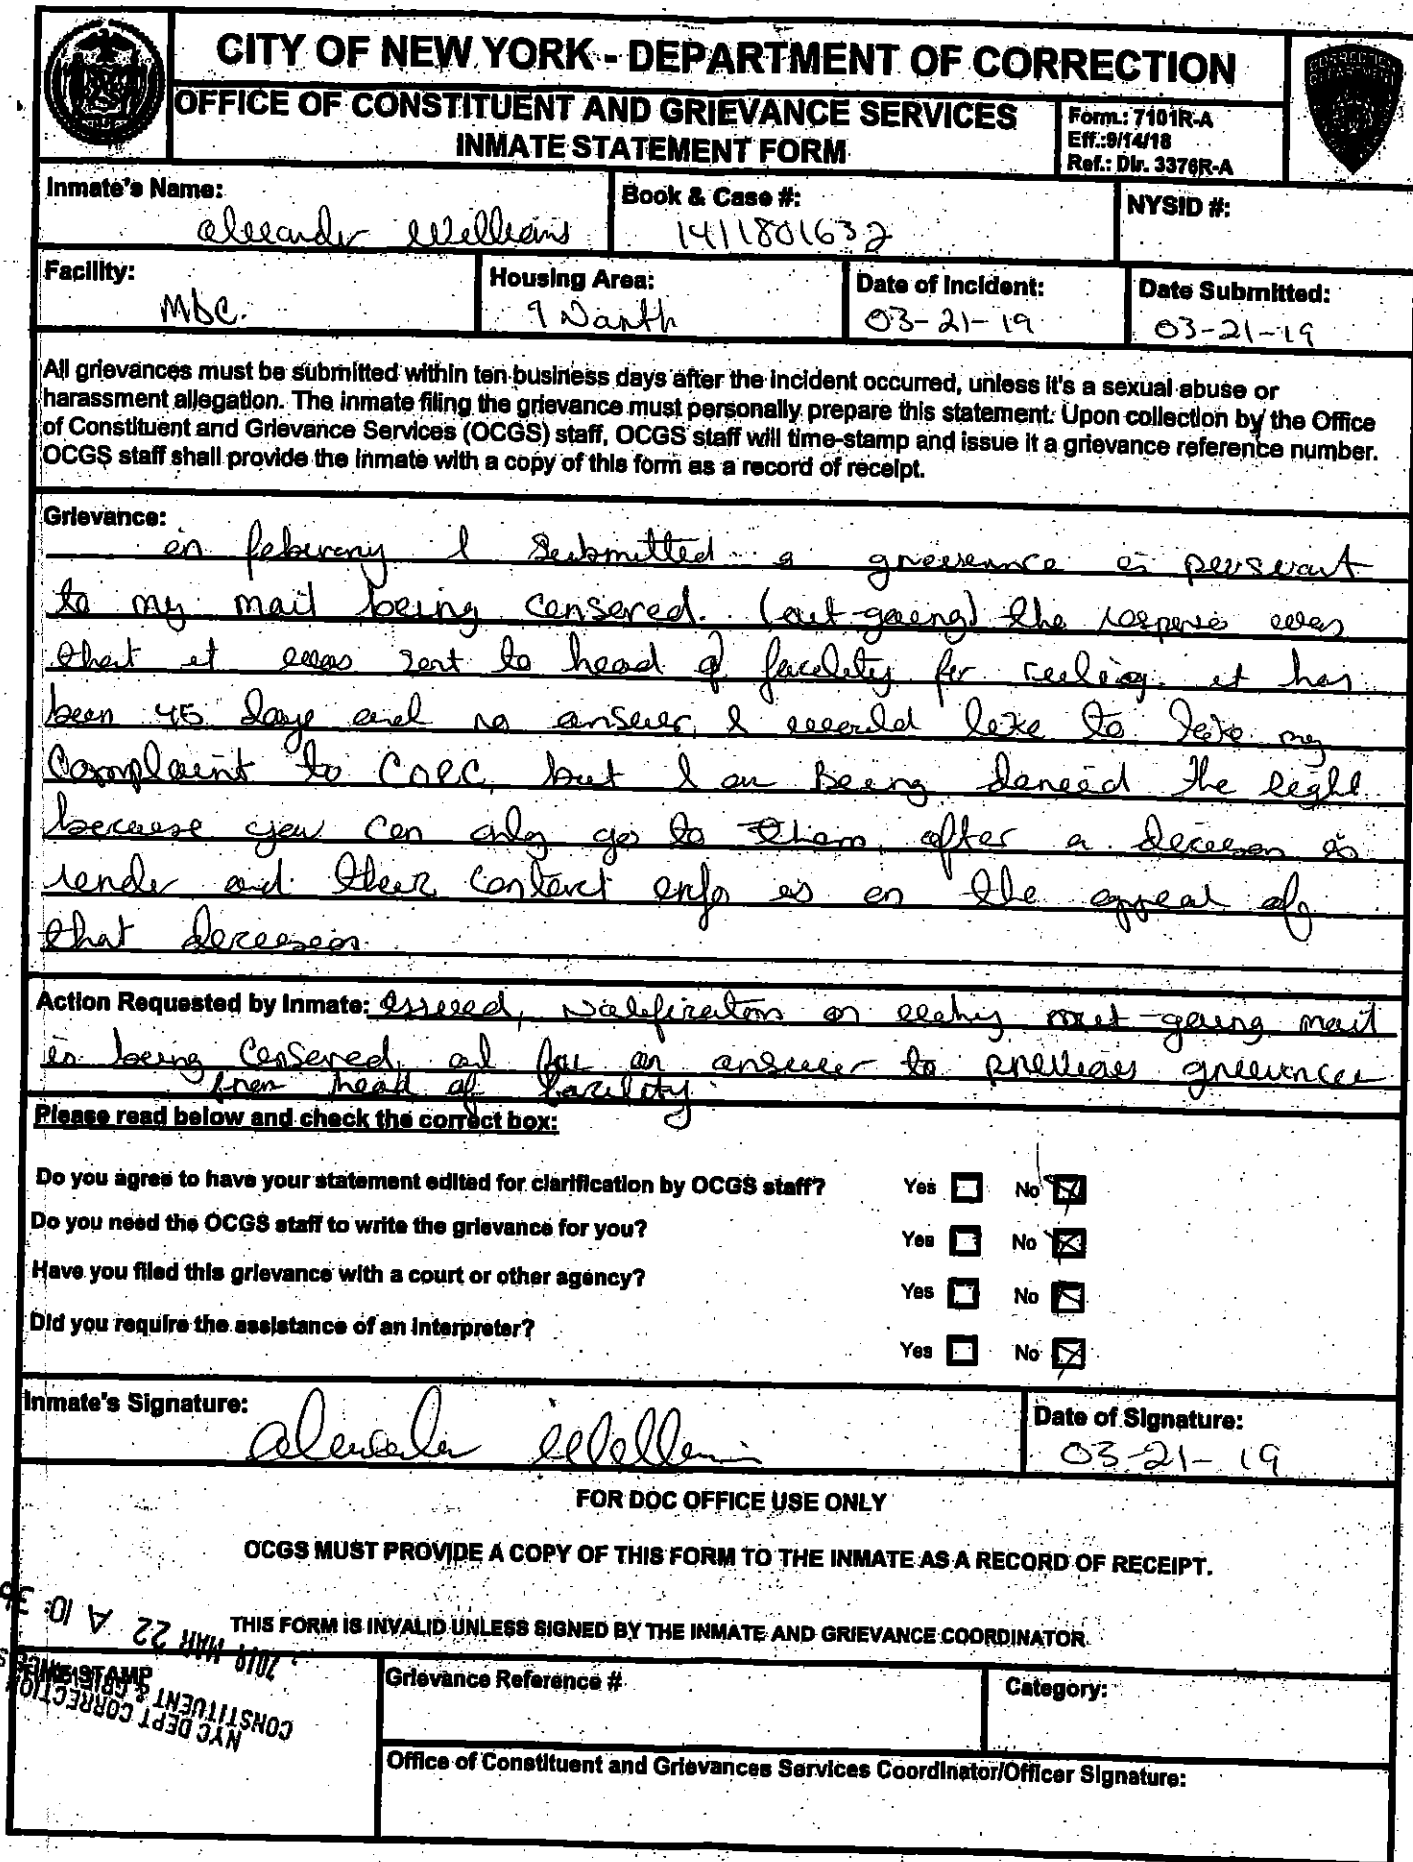 CITY OF NEW YORK - DEPARTMENT OF CORRECTION
OFFICE OF CONSTITUENT AND GRIEVANCE SERVICES
INMATE STATEMENT FORM
Form.: 7101R-A
Eff.:9/14/18
Ref.: Dir. 3376R-A
Inmate's Name:
Williams
Book & Case #:
1411801632
NYSID #:
Facility:
MDC.
Housing Area:
9 North
Date of Incident:
03-21-19
Date Submitted:
03-21-19
All grievances must be submitted within ten business days after the incident occurred, unless it's a sexual abuse or
harassment allegation. The inmate filing the grievance must personally prepare this statement. Upon collection by the Office
of Constituent and Grievance Services (OCGS) staff, OCGS staff will time-stamp and issue it a grievance reference number.
OCGS staff shall provide the inmate with a copy of this form as a record of receipt.
Grievance:
in I Submitted a
to my mail being censered. (out-going) the was
that it was sent to head of facility for ruling. it has
been 45 days and no answer, I would like to take my
Complaint to CORC, but I am Being denied the right
because you can only go to them after a decision is
render and their contact info is on the appeal of
that
Action Requested by Inmate: on why out-going mail
is being Censered, and for an answer to
from head of facility.
Please read below and check the correct box:
Do you agree to have your statement edited for clarification by OCGS staff? Yes No
Do you need the OCGS staff to write the grievance for you? Yes No
Have you filed this grievance with a court or other agency? Yes No
Did you require the assistance of an interpreter? Yes No
Inmate's Signature:
Date of Signature:
03-21-19
FOR DOC OFFICE USE ONLY
OCGS MUST PROVIDE A COPY OF THIS FORM TO THE INMATE AS A RECORD OF RECEIPT.
THIS FORM IS INVALID UNLESS SIGNED BY THE INMATE AND GRIEVANCE COORDINATOR.
TIME STAMP
NYC DEPT CORRECTION
CONSTITUENT &
2019 MAR 22 A 10:
Grievance Reference #
Category:
Office of Constituent and Grievances Services Coordinator/Officer Signature: